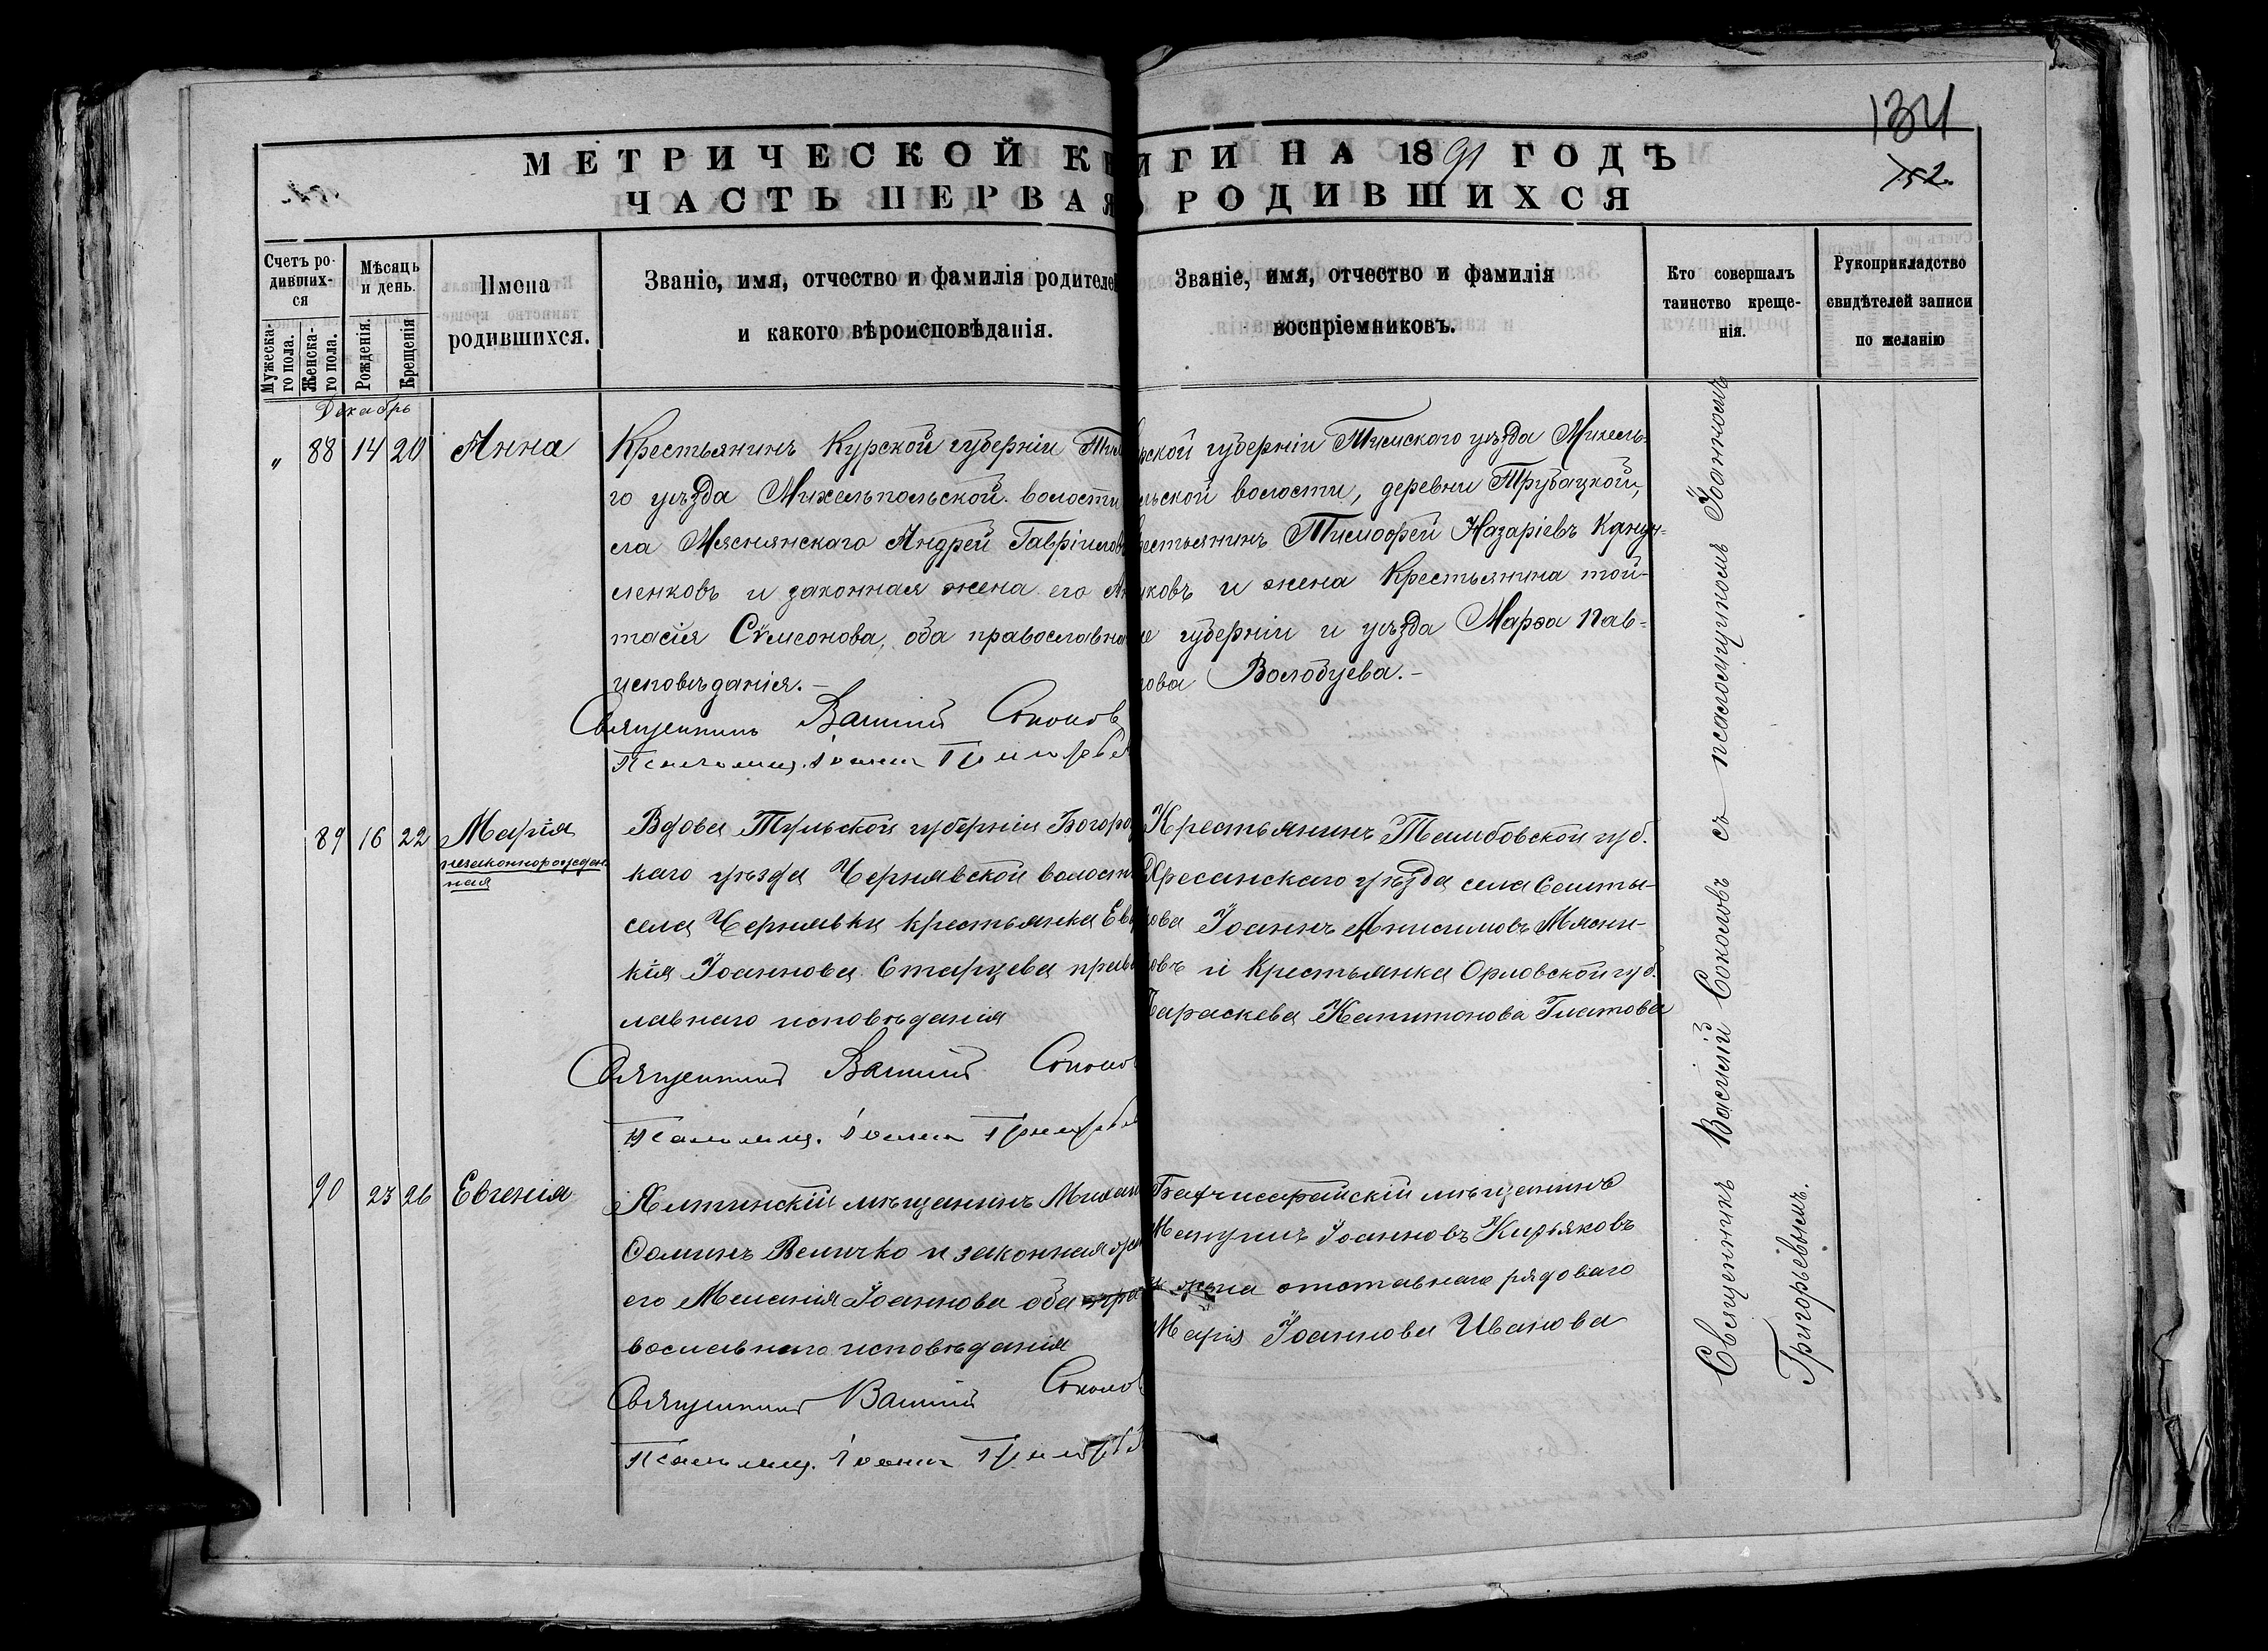 134
152.
МЕТРИЧЕСКОЙ КНИГИ НА 1891 ГОДЪ
ЧАСТЬ ПЕРВАЯ РОДИВШИХСЯ
Счетъ родивших-
ся
Мужеска-
го пола.
Женска-
го пола.
Мѣсяцъ
и день.
Рожденія.
Крещенія
Имена
родившихся.
Званіе, имя, отчество и фамилія родителе
и какого вѣроисповѣданія.
Званіе, имя, отчество и фамилія
воспріемниковъ.
Кто совершалъ
таинство креще-
нія.
Рукоприкладство
свидѣтелей записи
по желанію
Декабрь
„ 88 14 20 Анна
Крестьянинъ Курской губерніи Тим
го уѣзда Михельпольской волости
ела Мяснянскаго Андрей Гавріилов
менковъ и законная жена его Ан
тасія Сѵмеонова, оба православна
исповѣданія.–
Священникъ Василій Соколов
Псаломщ. Іоаннъ Григорьев
рской губерніи Тимского уѣзда Михель-
льской волости, деревни Трубацкой,
рестьянинъ Тимофей Назаріевъ
уковъ и жена Крестьянина той-
е губерніи и уѣзда Марѳа Пав-
лова Володуева.–
89 16 22 Марія
незаконнорожден-
ная
Вдова Тульской губерніи Богоро
каго уѣзда Чернявской волости
села Чернявки крестьянка Ев
кія Іоаннова Старцева прав
лавнаго исповѣданія
Священникъ Василій Соколов
Псаломщ. Іоаннъ Григорьев
Крестьянинъ Тамбовской губ.
уѣзда села
ова Іоаннъ Анисимовъ Мясни-
овъ и Крестьянка Орловской губ.
Параскева Капитонова Глатова
90 23 26 Евгенія
Ялтинскій мѣщанинъ
Ѳоминъ Величко и законная жен
его Меланія Іоаннова оба пра
вославнаго исповѣданія
Священникъ Василій Соколов
Псаломщ. Іоаннъ Григорьев
Бахчисарайскій мѣщанинъ
Мануилъ Іоанновъ Кирьяковъ
и жена отставнаго рядоваго
Марія Іоаннова Иванова
Священникъ Василій Соколовъ съ псаломщикомъ Іоанномъ
Григорьевымъ.